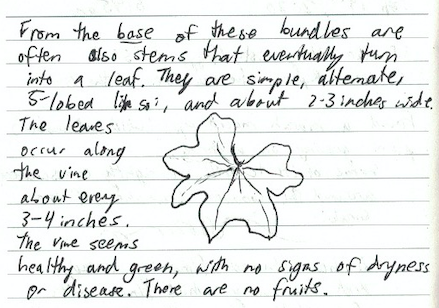 From the base of these bundles are
often also stems that eventually turn
into a leaf. They are simple, alternate,
5-lobed like so:, and about 2-3 inches wide.
The leaves
occur along
the vine
about every
3-4 inches.
The vine seems
healthy and green, with no signs of dryness
or disease. There are no fruits.